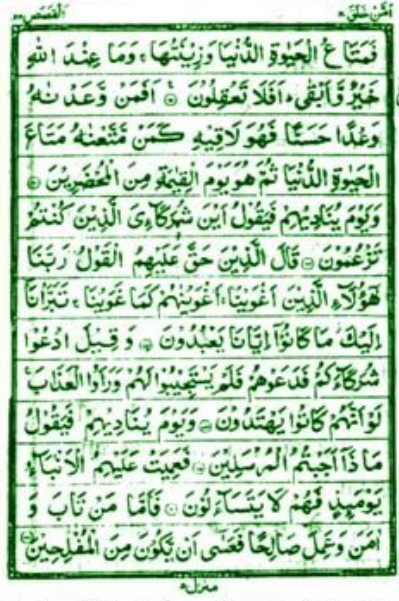 اَمَّنْ خَلَقَ ٢٠ اَلْقَصَص ٢٨
فَمَتَاعُ الْحَيٰوةِ الدُّنْيَا وَزِيْنَتُهَا ۚ وَمَا عِنْدَ اللّٰهِ
خَيْرٌ وَّاَبْقٰى ؕ اَفَلَا تَعْقِلُوْنَ ۞ اَفَمَنْ وَّعَدْنٰهُ
وَعْدًا حَسَنًا فَهُوَ لَاقِيْهِ كَمَنْ مَّتَّعْنٰهُ مَتَاعَ
الْحَيٰوةِ الدُّنْيَا ثُمَّ هُوَ يَوْمَ الْقِيٰمَةِ مِنَ الْمُحْضَرِيْنَ ۞
وَيَوْمَ يُنَادِيْهِمْ فَيَقُوْلُ اَيْنَ شُرَكَآءِىَ الَّذِيْنَ كُنْتُمْ
تَزْعُمُوْنَ ۞ قَالَ الَّذِيْنَ حَقَّ عَلَيْهِمُ الْقَوْلُ رَبَّنَا
هٰٓؤُلَآءِ الَّذِيْنَ اَغْوَيْنَا ۚ اَغْوَيْنٰهُمْ كَمَا غَوَيْنَا ۚ تَبَرَّاْنَاۤ
اِلَيْكَ مَا كَانُوْۤا اِيَّانَا يَعْبُدُوْنَ ۞ وَقِيْلَ ادْعُوْا
شُرَكَآءَكُمْ فَدَعَوْهُمْ فَلَمْ يَسْتَجِيْبُوْا لَهُمْ وَرَاَوُا الْعَذَابَ ۚ
لَوْ اَنَّهُمْ كَانُوْا يَهْتَدُوْنَ ۞ وَيَوْمَ يُنَادِيْهِمْ فَيَقُوْلُ
مَاذَاۤ اَجَبْتُمُ الْمُرْسَلِيْنَ ۞ فَعَمِيَتْ عَلَيْهِمُ الْاَنْۢبَآءُ
يَوْمَئِذٍ فَهُمْ لَا يَتَسَآءَلُوْنَ ۞ فَاَمَّا مَنْ تَابَ وَ
اٰمَنَ وَعَمِلَ صَالِحًا فَعَسٰۤى اَنْ يَّكُوْنَ مِنَ الْمُفْلِحِيْنَ ۞
منزل ٥